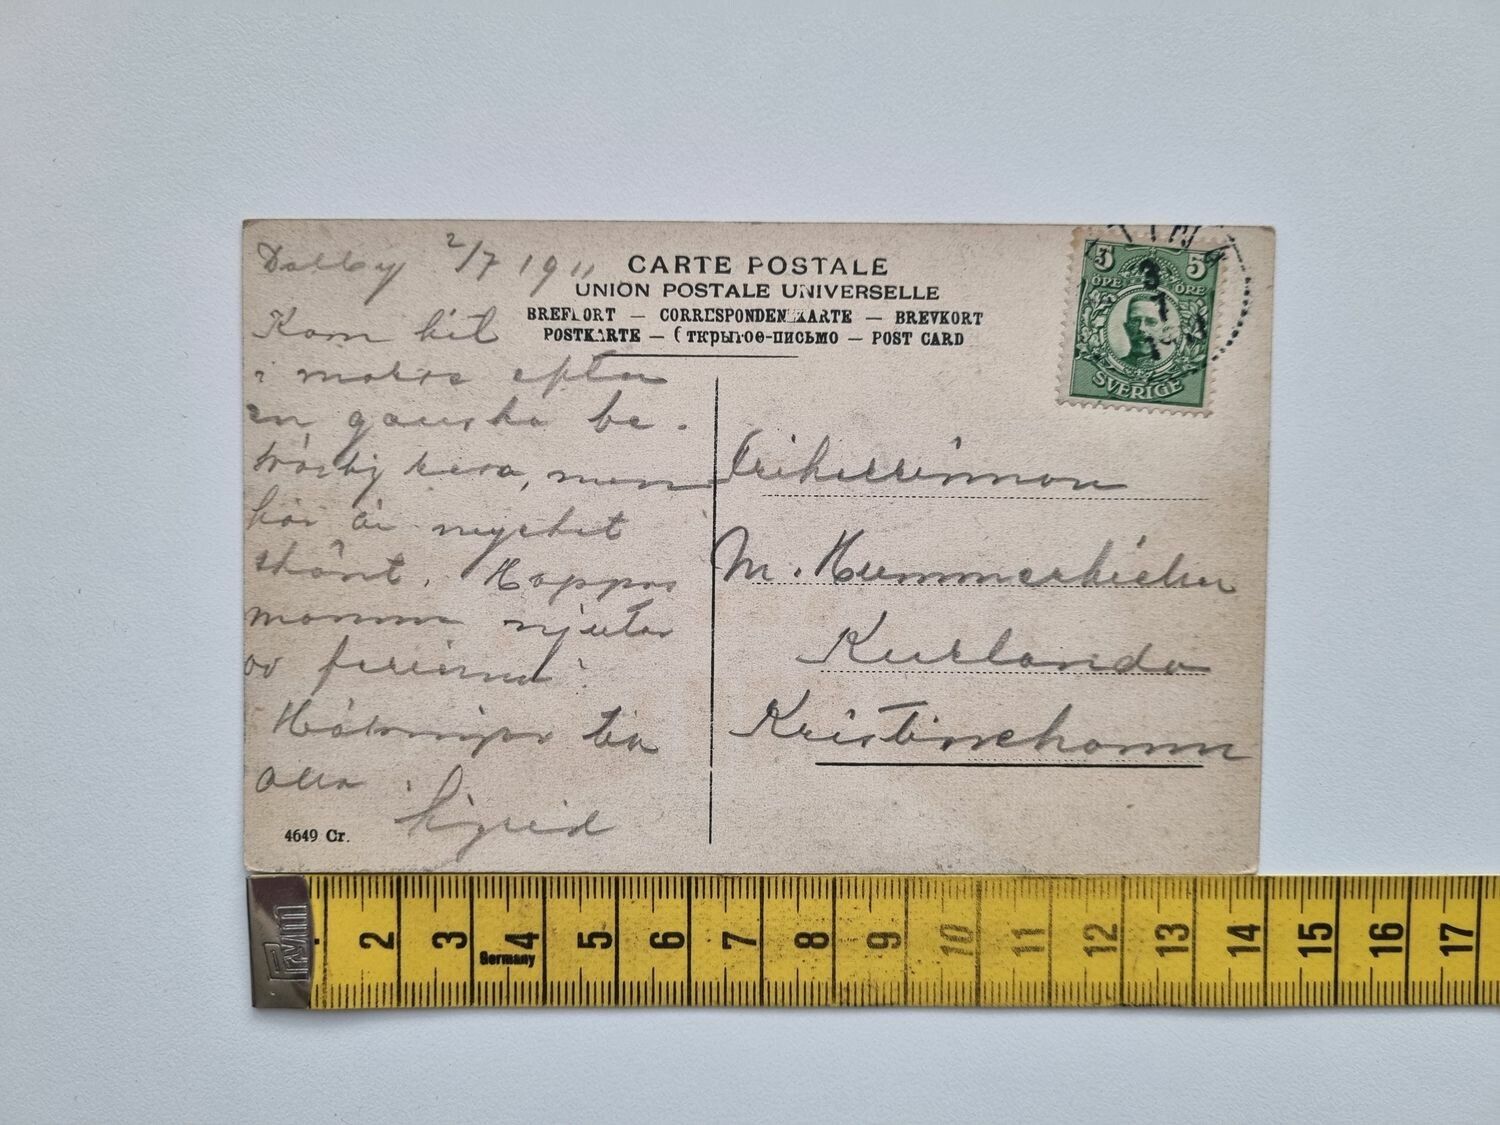 Dalby 2/7 1911
Kom hit
i mörkr efter
en ganska be-
svärlig resa, men
här är mycket
skönt. Hoppas
mamma njuter
av ferierna.
Hälsningar till
alla. Sigrid
4649 Cr.
CARTE POSTALE
UNION POSTALE UNIVERSELLE
BREFKORT — CORRESPONDENZKARTE — BREVKORT
POSTKARTE — Открытое-письмо — POST CARD
5 5
ÖRE ÖRE
SVERIGE
3
7
M.
Kurlanda
Kristinehamn
Germany
2 3 4 5 6 7 8 9 10 11 12 13 14 15 16 17